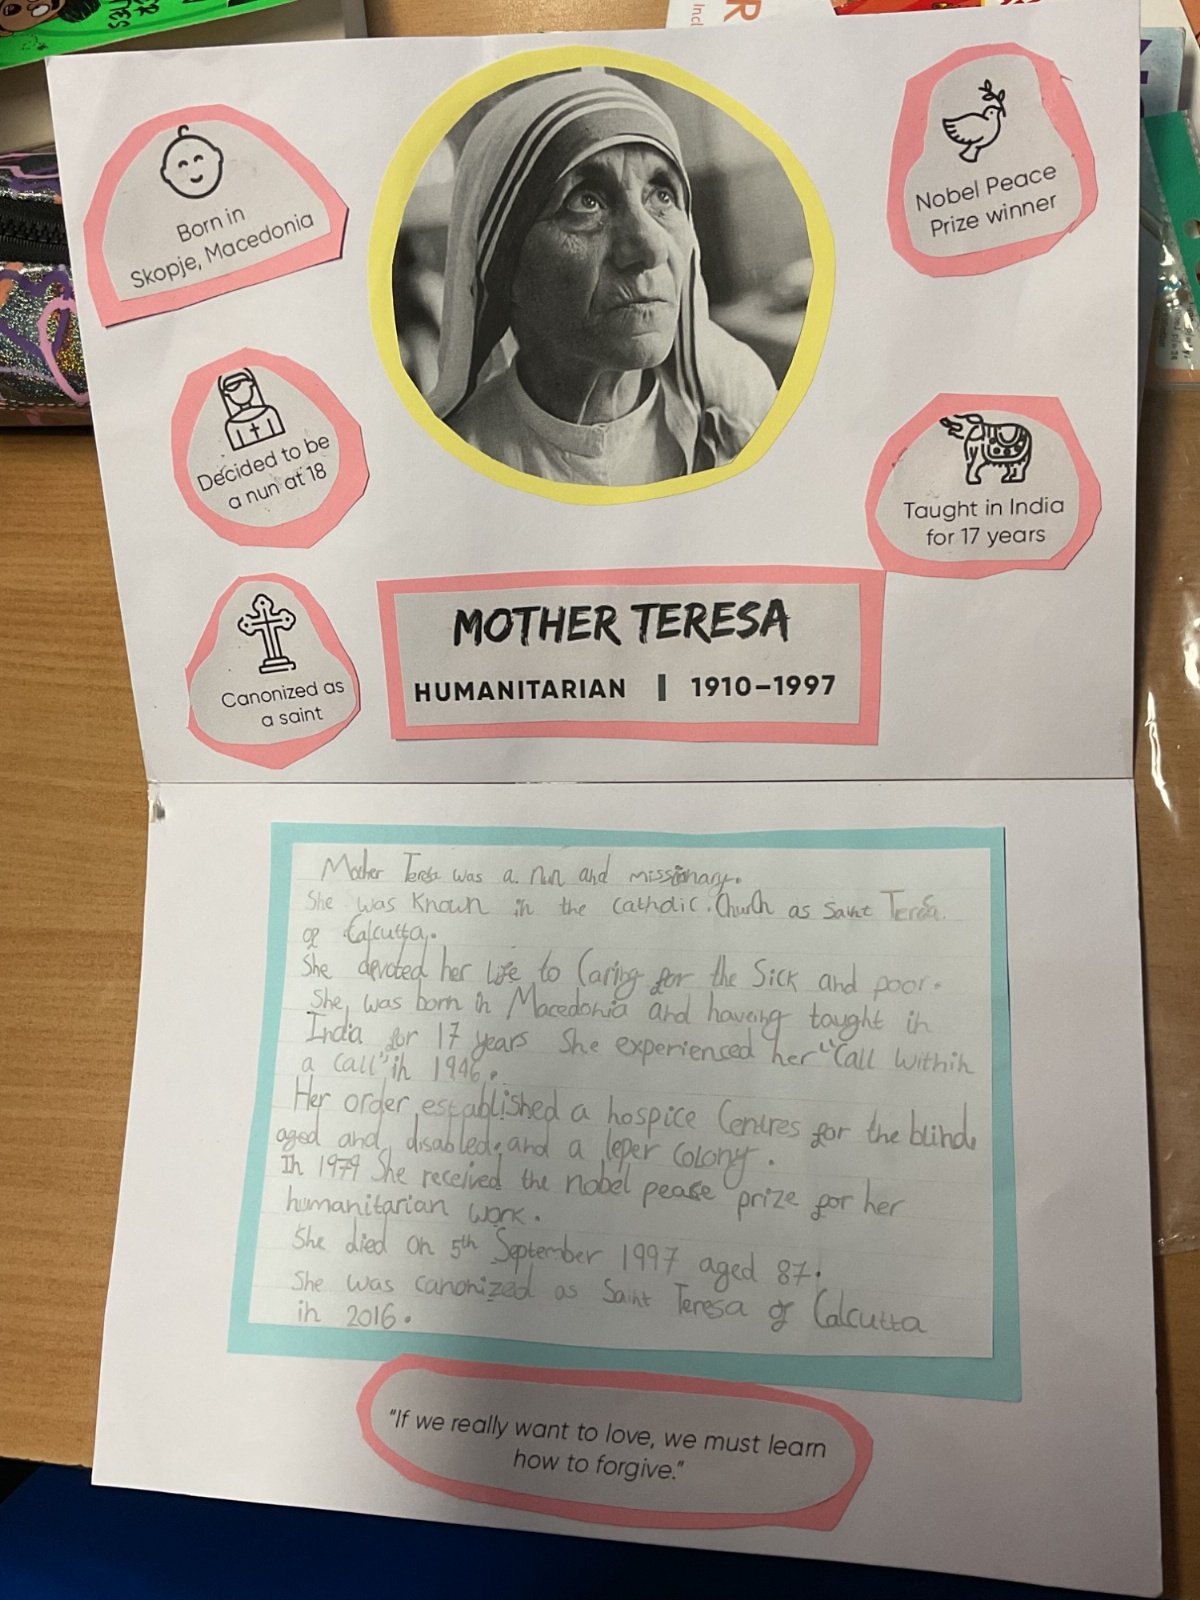 Born in
Skopje, Macedonia
Nobel Peace
Prize winner
Decided to be
a nun at 18
Taught in India
for 17 years
Canonized as
a saint
MOTHER TERESA
HUMANITARIAN | 1910–1997
Mother Teresa was a nun and missionary.
She was known in the catholic Church as Saint Teresa
of Calcutta.
She devoted her life to Caring for the Sick and poor.
She was born in Macedonia and haveing taught in
India for 17 years She experienced her "Call within
a call" in 1946.
Her order established a hospice Centres for the blind,
aged and disabled, and a leper colony.
In 1979 She received the nobel pease prize for her
humanitarian work.
She died on 5th September 1997 aged 87.
She was canonized as Saint Teresa of Calcutta
in 2016.
"If we really want to love, we must learn
how to forgive."